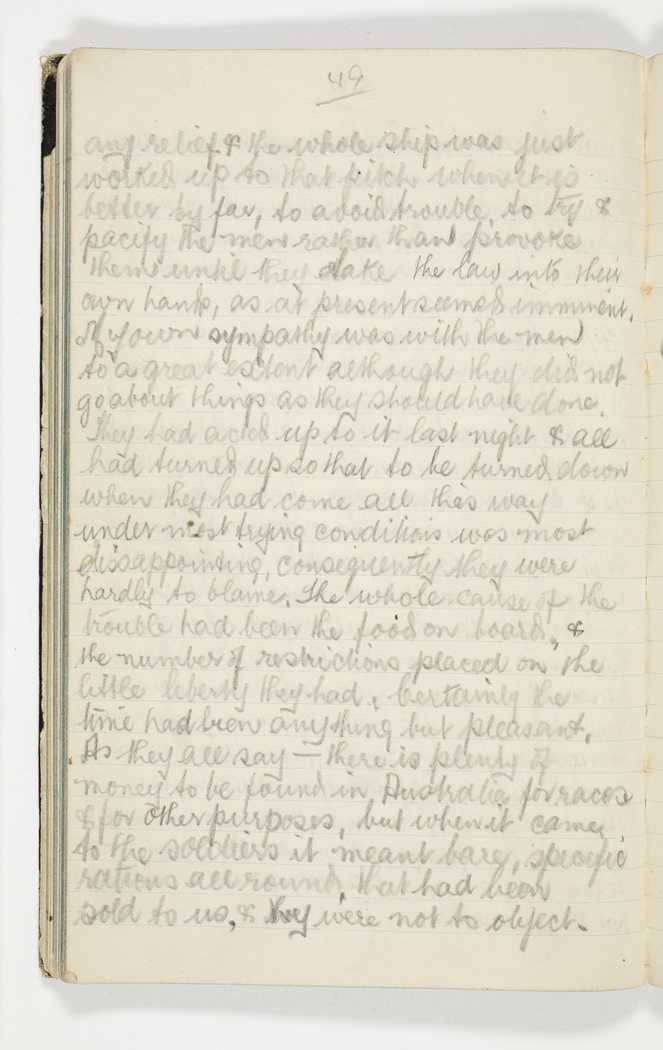 49
any relief & the whole ship was just
worked up to that pitch when it is
better by far, to avoid trouble, to try &
pacify the men rather than provoke
them until they take the law into their
own hands, as at present seemed imminent.
My own sympathy was with the men
to a great extent although they did not
go about things as they should have done.
They had acted up to it last night & all
had turned up so that to be turned down
when they had come all this way
under most trying conditions was most
dissappointing, consequently they were
hardly to blame. The whole cause of the
trouble had been the food on board, &
the number of restrictions placed on the
little liberty they had. Certainly the
time had been anything but pleasant.
As they all say — there is plenty of
money to be found in Australia for races
& for other purposes, but when it came
to the soldiers it meant bare, specific
rations all round, that had been
sold to us, & they were not to object.